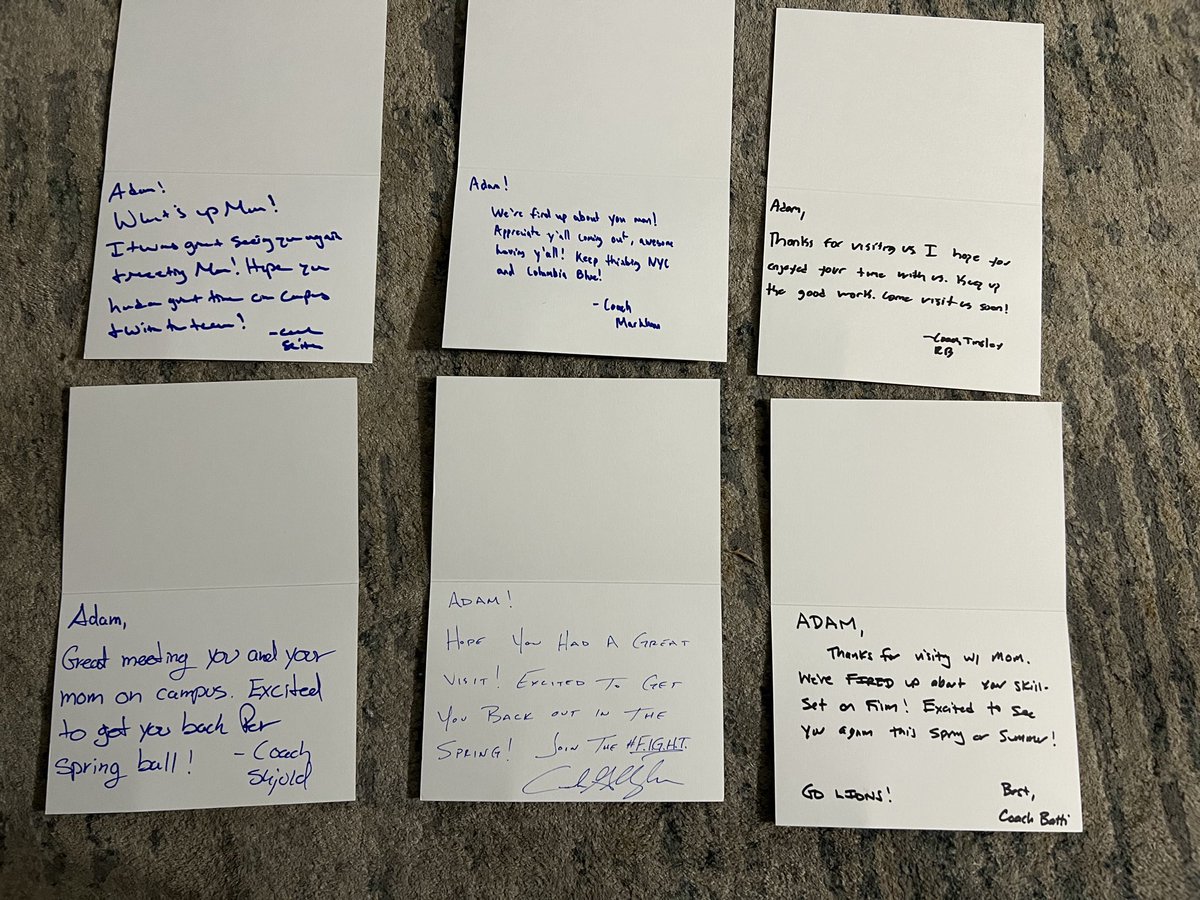 Adam!
What's up Man!
It was great seeing you again
& meeting Mom! Hope you
had a great time on campus
& with the team!
- Coach
Adam!
We're fired up about you man!
Appreciate y'all coming out, awesome
having y'all! Keep thinking NYC
and Columbia Blue!
- Coach
Adam,
Thanks for visiting us I hope you
enjoyed your time with us. Keep up
the good work. Come visit us soon!
- Coach Tinsley
RB
Adam,
Great meeting you and your
mom on campus. Excited
to get you back for
spring ball!
- Coach
Skjold
ADAM!
HOPE YOU HAD A GREAT
VISIT! EXCITED TO GET
YOU BACK OUT IN THE
SPRING! JOIN THE #F.I.G.H.T.
ADAM,
Thanks for visity w/ Mom.
We're FIRED up about your skill-
set on Film! Excited to see
you again this Spring or Summer!
GO LIONS!
Best,
Coach Batti